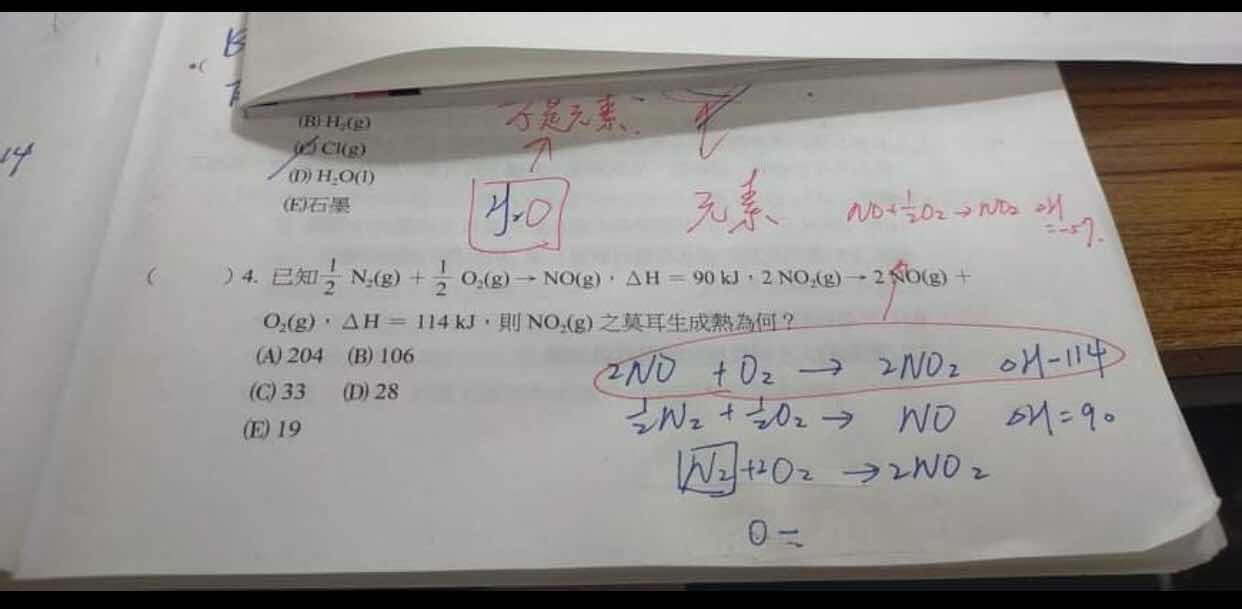 14
(B) H₂(g)
不是元素
(C) Cl(g)
(D) H₂O(l)
(E)石墨
H₂O
元素
NO+½O₂→NO₂ ΔH
=-57.
( )4. 已知 ½ N₂(g) + ½ O₂(g) → NO(g),ΔH = 90 kJ,2 NO₂(g) → 2 NO(g) +
O₂(g),ΔH = 114 kJ,則 NO₂(g) 之莫耳生成熱為何?
(A) 204 (B) 106
(C) 33 (D) 28
(E) 19
2NO + O₂ → 2NO₂ ΔH-114
½N₂ + ½O₂ → NO ΔH=90
N₂+2O₂ → 2NO₂
0=